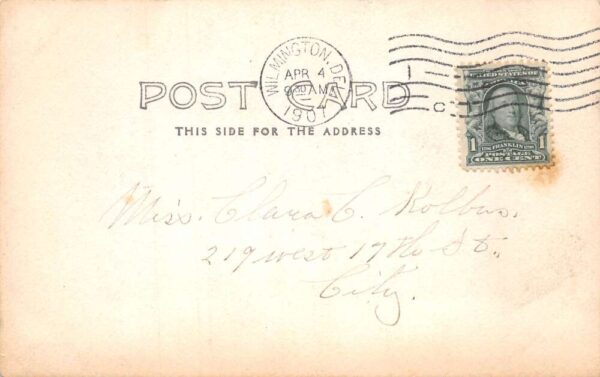 WILMINGTON, DEL.
APR 4
9 30 AM
1907
C
POST CARD
THIS SIDE FOR THE ADDRESS
UNITED STATES OF
1 FRANKLIN 1
POSTAGE
ONE CENT
Miss. Clara C. Kolbus.
219 west 17th St.,
City.